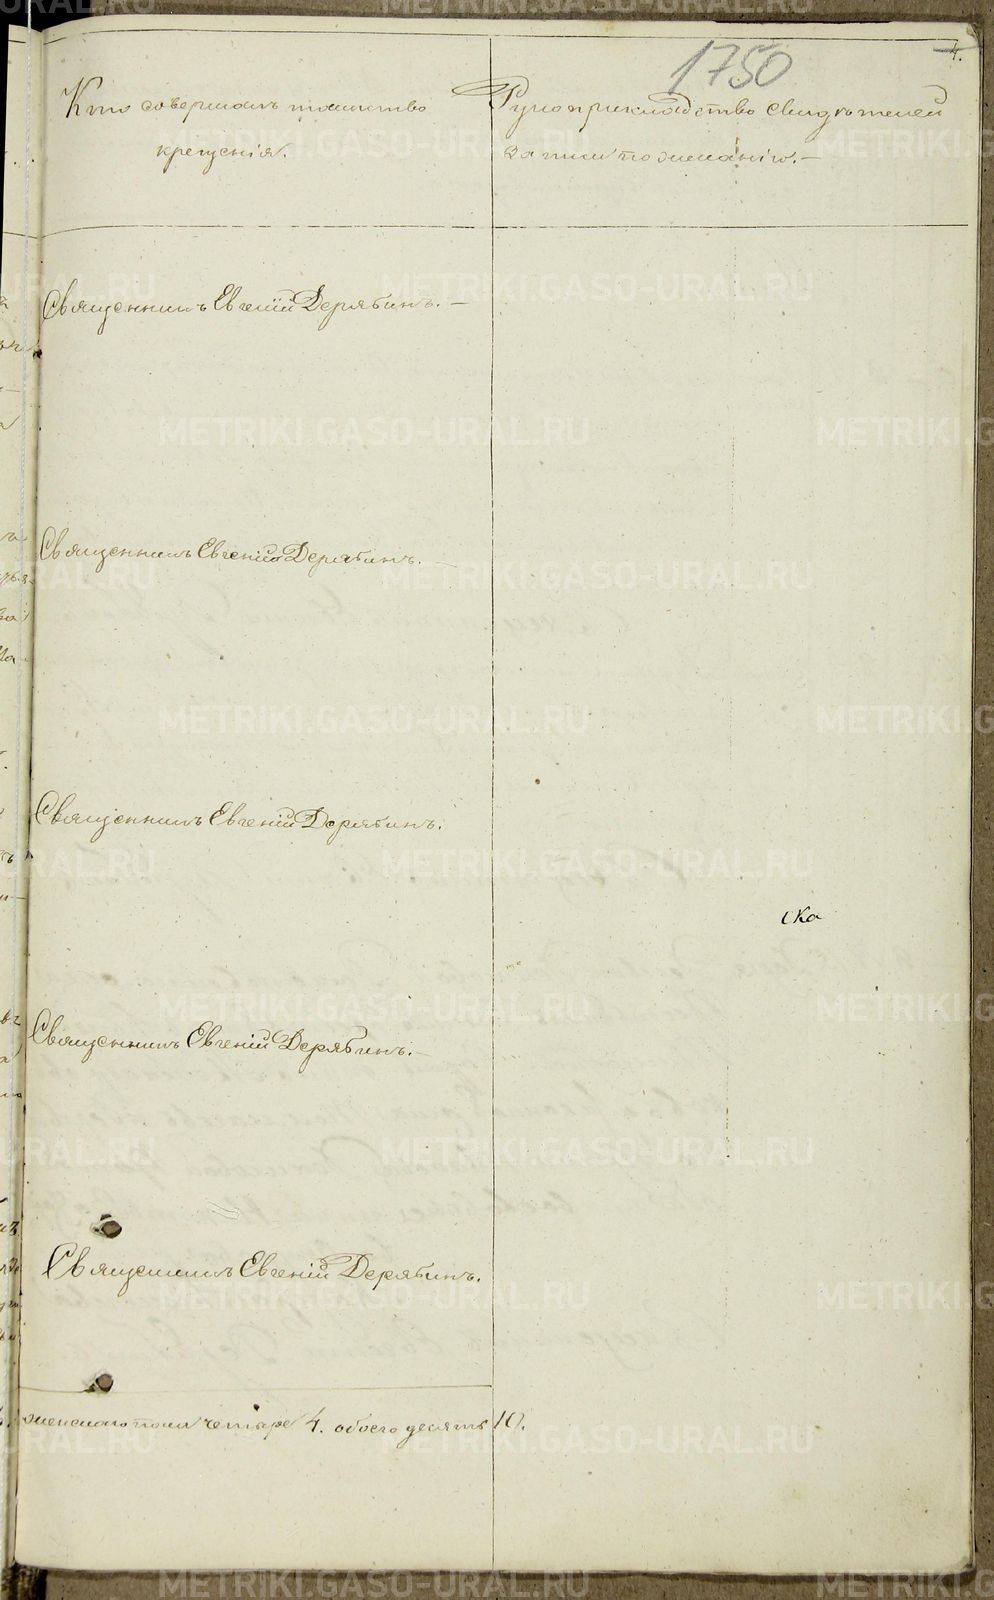 1750
4.
Кто совершалъ таинство
крещенія.
Рукоприкладство свидѣтелей
записи по желанію.—
Священникъ Евгеній Дерябинъ.—
Священникъ Евгеній Дерябинъ.—
Священникъ Евгеній Дерябинъ.
ска
Священникъ Евгеній Дерябинъ.—
Священникъ Евгеній Дерябинъ.
женскаго пола четыре 4. обоего десять 10.
METRIKI.GASO-URAL.RU